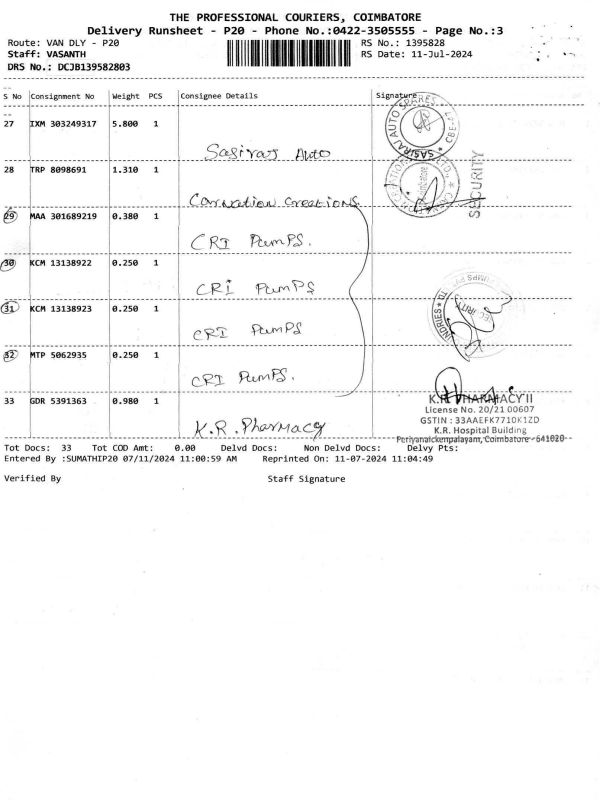 THE PROFESSIONAL COURIERS, COIMBATORE
Delivery Runsheet - P20 - Phone No.:0422-3505555 - Page No.:3
Route: VAN DLY - P20
RS No.: 1395828
Staff: VASANTH
RS Date: 11-Jul-2024
DRS No.: DCJB139582803
S No Consignment No Weight PCS Consignee Details Signature
27 IXM 303249317 5.800 1
Sasiraj Auto
SASIRAJ AUTO SPARES
28 TRP 8098691 1.310 1
Carnation Creations
SECURITY
29 MAA 301689219 0.380 1
CRI PumPS.
30 KCM 13138922 0.250 1
CRI PumPS
31 KCM 13138923 0.250 1
CRI PumPS
SECURITY
32 MTP 5062935 0.250 1
CRI PumPS.
33 GDR 5391363 0.980 1
K.R. Pharmacy
K.R. PHARMACY II
License No. 20/21 00607
GSTIN : 33AAEFK7710K1ZD
K.R. Hospital Building
Periyanaickenpalayam, Coimbatore - 641020
Tot Docs: 33 Tot COD Amt: 0.00 Delvd Docs: Non Delvd Docs: Delvy Pts:
Entered By :SUMATHIP20 07/11/2024 11:00:59 AM Reprinted On: 11-07-2024 11:04:49
Verified By Staff Signature